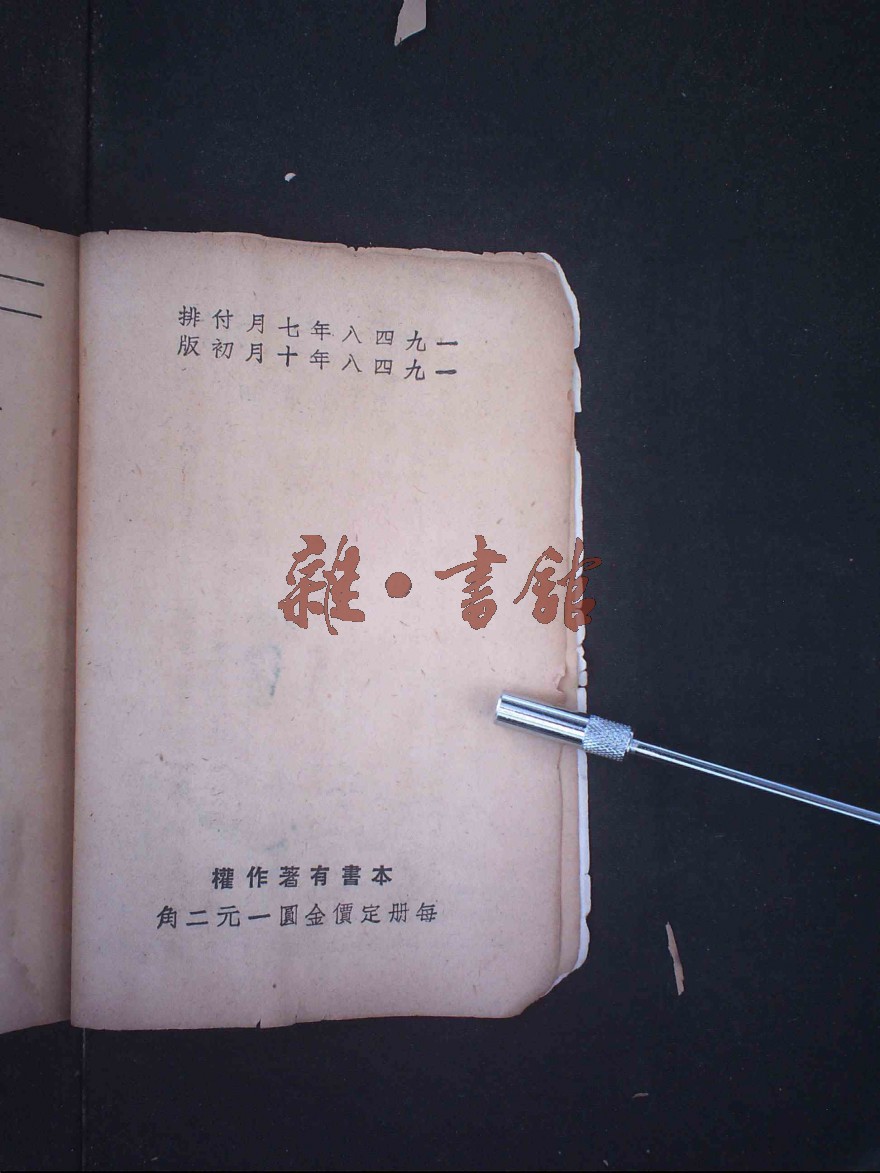 一九四八年七月付排
一九四八年十月初版
雜·書館
本書有著作權
每册定價金圓一元二角